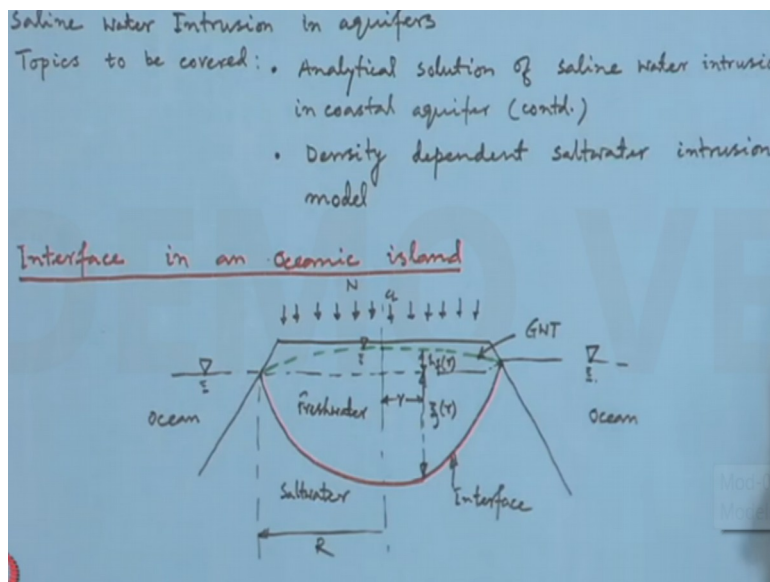 Saline Water Intrusion in aquifers
Topics to be covered: • Analytical solution of saline water intrusio
in coastal aquifer (contd.)
• Density dependent saltwater intrusion
model
Interface in an Oceanic island
N
GWT
hf(r)
Ocean
Freshwater
r
ξ(r)
Ocean
Saltwater
Interface
R
DEMO VE
Mod-0